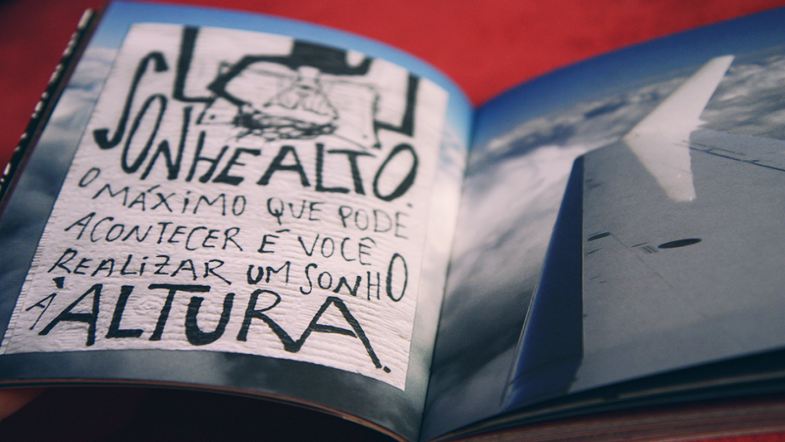 SONHE ALTO.
O MÁXIMO QUE PODE
ACONTECER É VOCÊ
REALIZAR UM SONHO
À ALTURA.